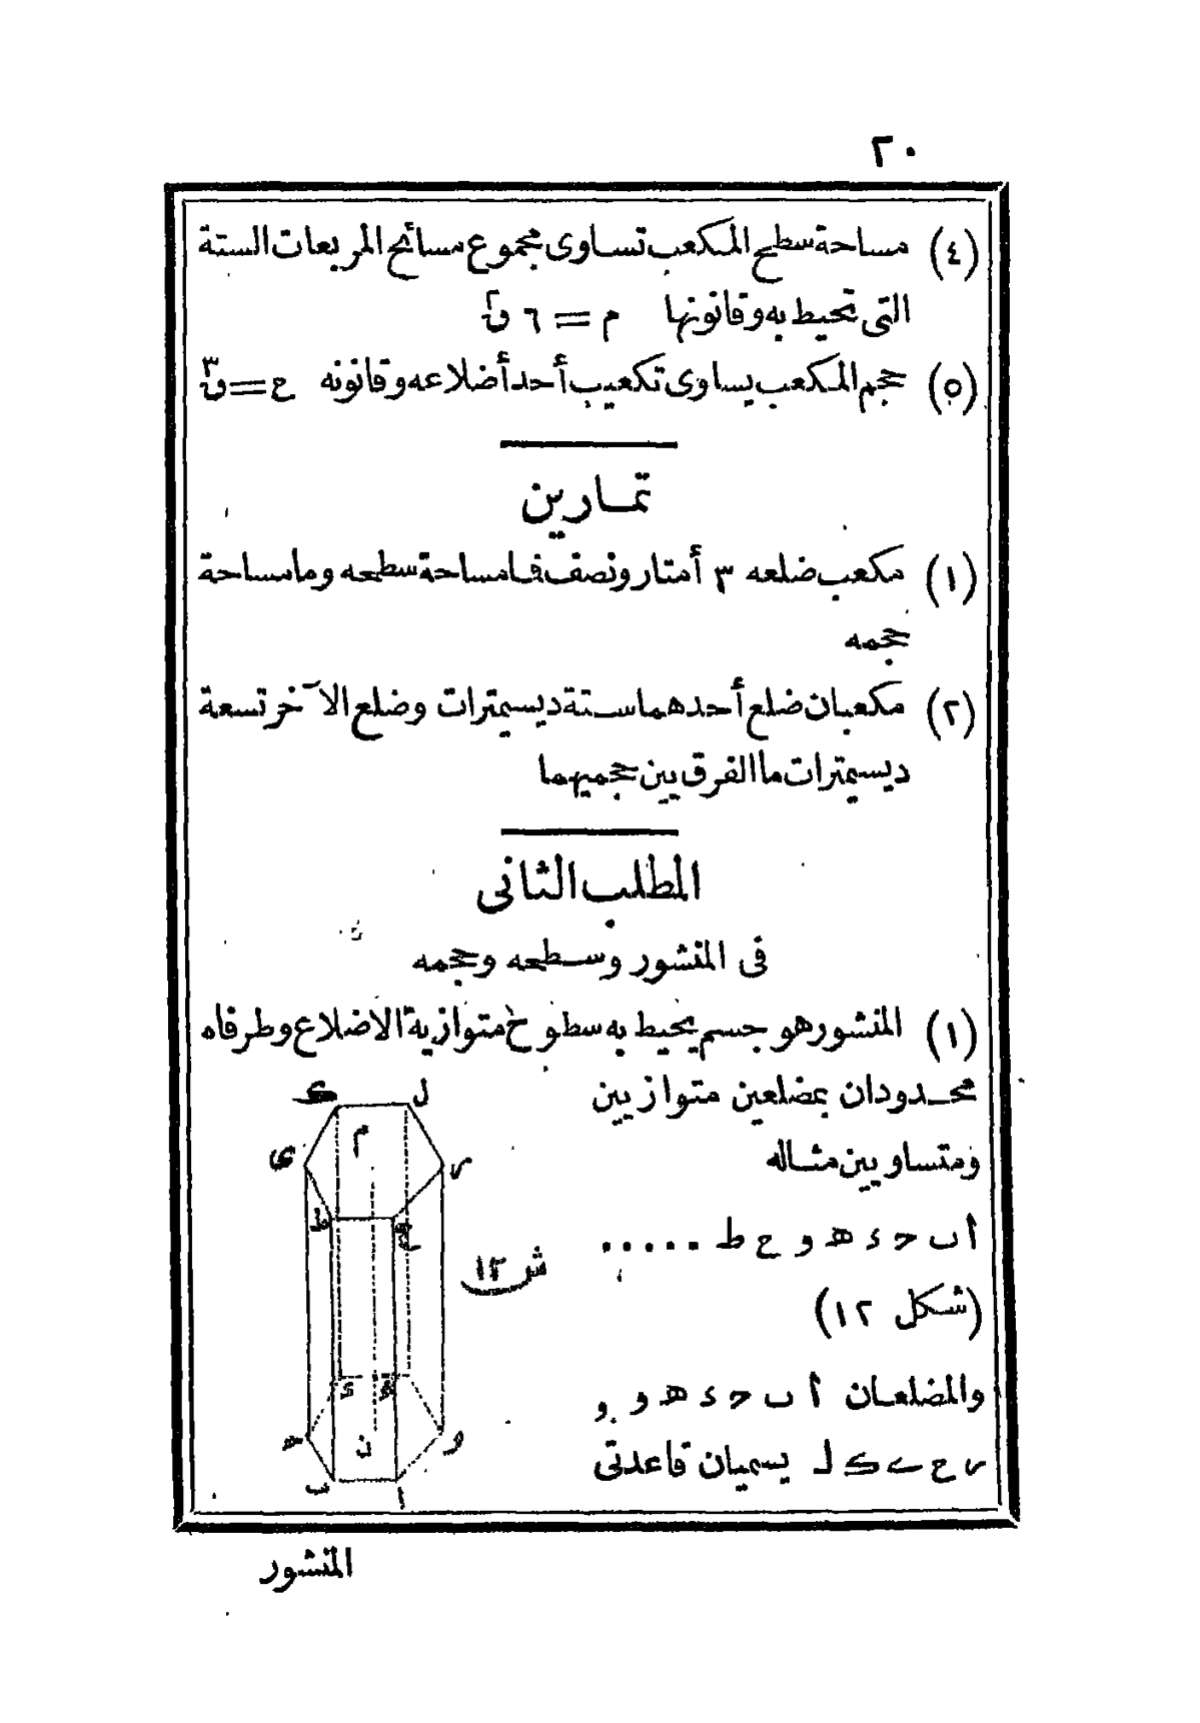 ٢٠
(٤) مساحة سطح المكعب تساوى مجموع مسائح المربعات الستة
التى تحيط به وقانونها م = ٦ ن٢
(٥) حجم المكعب يساوى تكعيب أحد أضلاعه وقانونه ح = ن٣
تمارين
(١) مكعب ضلعه ٣ أمتار ونصف فما مساحة سطحه وما مساحة
حجمه
(٢) مكعبان ضلع أحدهما ستة ديسيمترات وضلع الآخر تسعة
ديسيمترات ما الفرق بين حجميهما
المطلب الثانى
فى المنشور وسطحه وحجمه
(١) المنشور هو جسم يحيط به سطوح متوازية الاضلاع وطرفاه
محدودان بمضلعين متوازيين
ومتساويين مثاله
أ ب ح ء ه و ح ط .....
(شكل ١٢)
والمضلعان أ ب ح ء ه و و
ر ح ى ك ل يسميان قاعدتى
ك ل
م
ى ر
ط
ش ١٢
ء
ه ن و
ب أ
المنشور